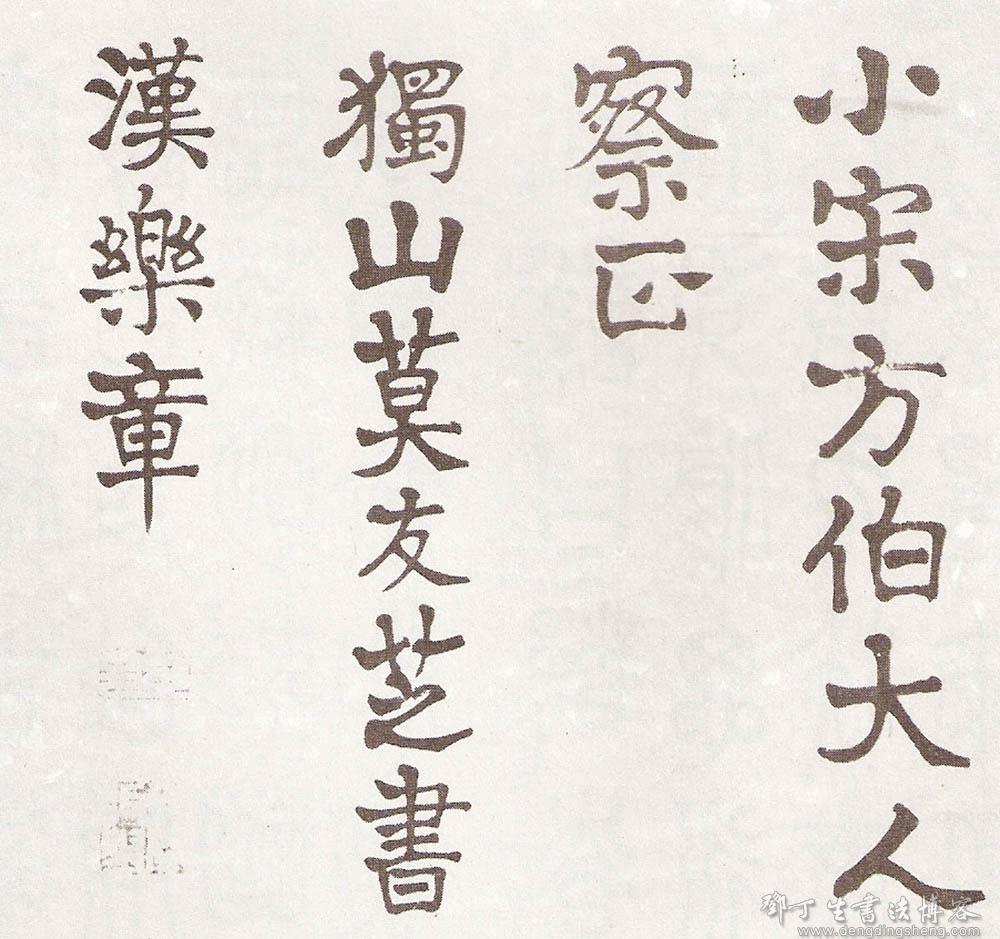 小宋方伯大人
察正
獨山莫友芝書
漢樂章
鄧丁生書法博客
www.dengdingsheng.com